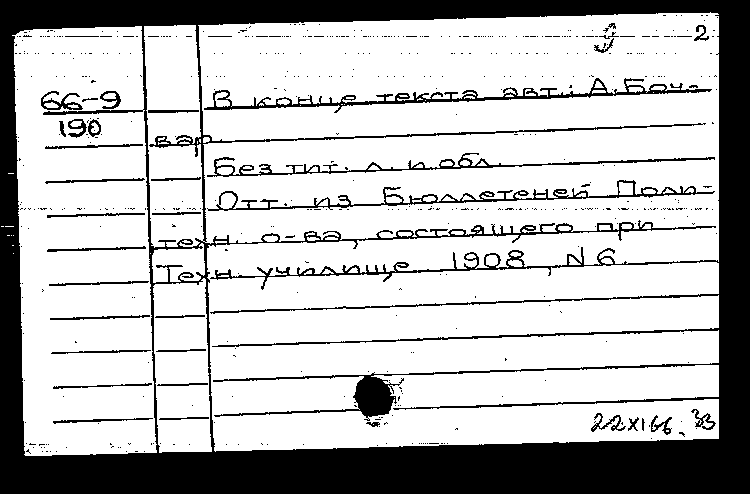 9 2
66-9 В конце текста авт.: А. Боч-
190 вар
Без тит. л. и обл.
Отт. из Бюллетеней Поли-
техн. о-ва, состоящего при
Техн. училище 1908, N 6.
22XI66.